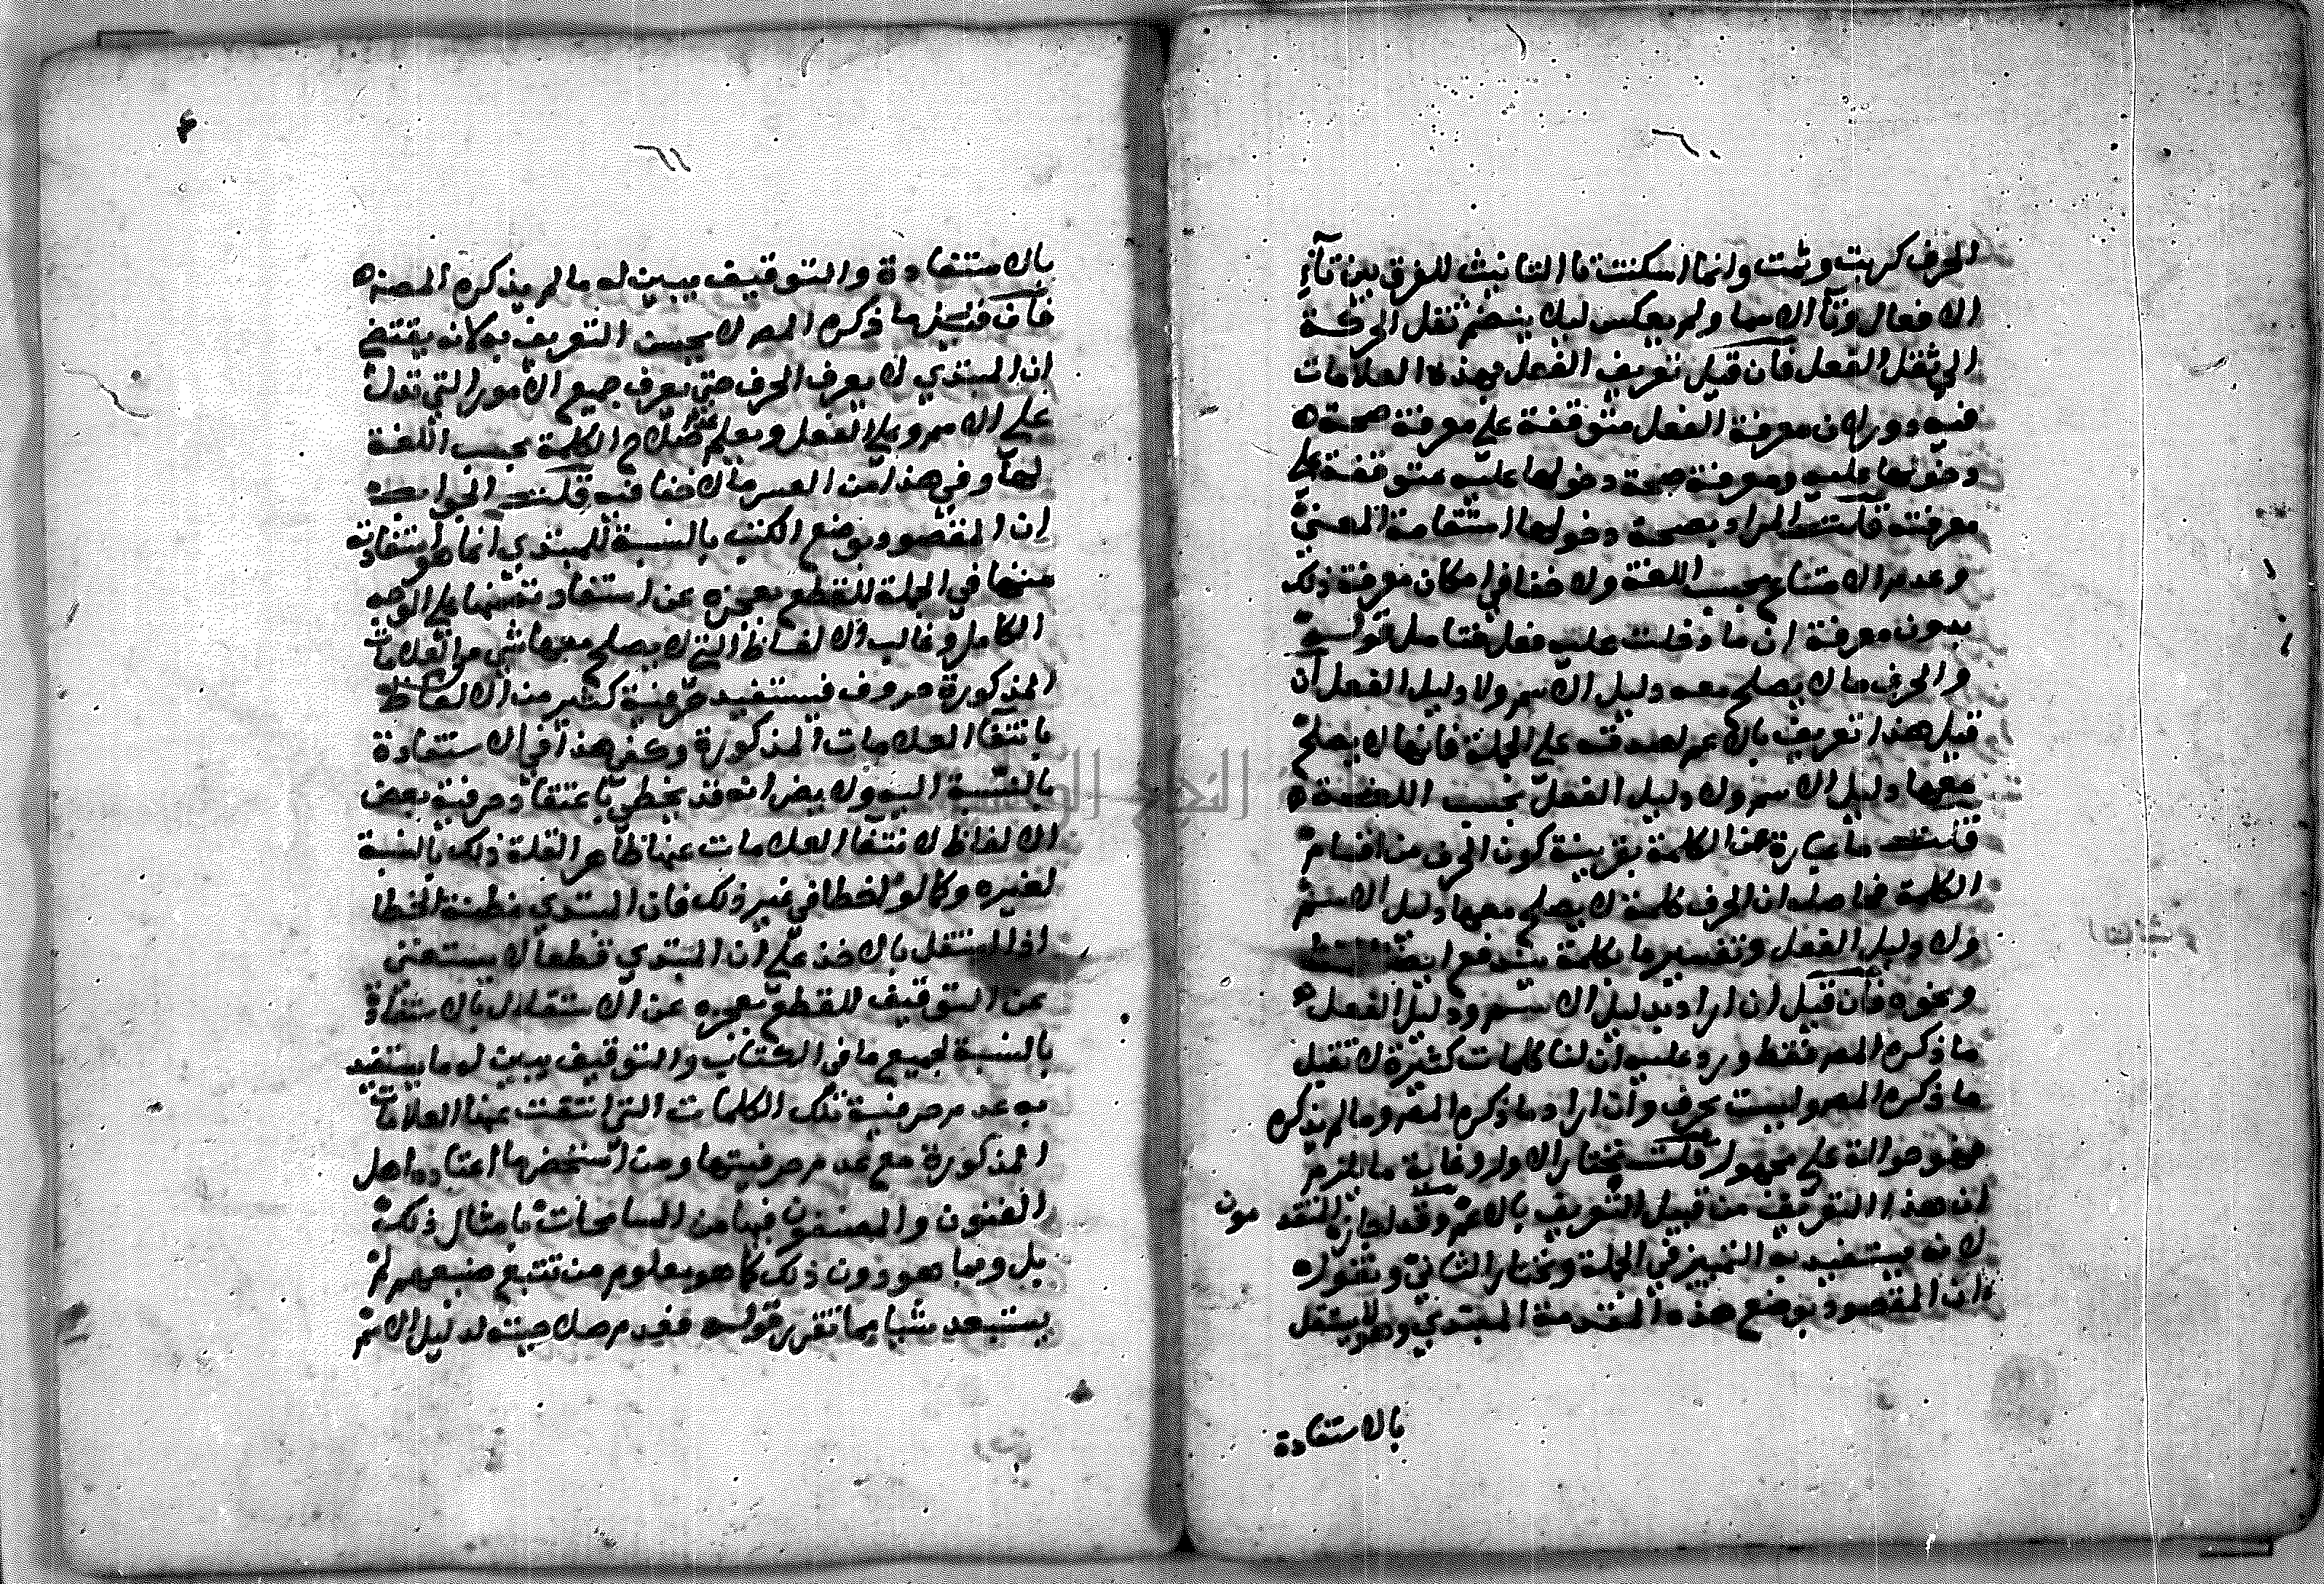 الحرف كربت وثمت وانما اسكنت تا التانيث للفرق بين تآء
الافعال وتآ الاسما ولم يعكس ليلا ينضم ثقل الحركة
الى ثقل الفعل فان قيل تعريف الفعل بهذه العلامات
فيه دور لان معرفة الفعل متوقفة على معرفة صحة
دخولها عليه ومعرفة صحة دخولها عليه متوقفة على
معرفته قلت المراد بصحة دخولها استقامة المعنى
وعدم الامتناع بحسب اللغة ولا خفا في امكان معرفة ذلك
بدون معرفة ان ما دخلت عليه فعل فتامل قوله
والحرف ما لا يصلح معه دليل الاسم ولا دليل الفعل ان
قيل هذا تعريف بالاعم لصدقه على الجملة فانها لا يصلح
معها دليل الاسم ولا دليل الفعل بحسب اللغة
قلت ما عبارة عن الكلمة بقرينة كون الحرف من اقسام
الكلمة فحاصله ان الحرف كلمة لا يصلح معها دليل الاسم
ولا دليل الفعل وتفسير ما بكلمة يندفع ايضا
ونحوه فان قيل ان اراد بدليل الاسم ودليل الفعل
ما ذكره المص فقط ورد عليه ان لنا كلمات كثيرة لا تقبل
ما ذكره المص وليست بحرف وان اراد ما ذكره المص وما لم يذكره
فهو حوالة على مجهول قلت نختار الاول وغاية ما يلزم
ان هذا التعريف من قبيل التعريف بالاعم وقد اجازه المتقد مون
لانه يستفيد به التمييز في الجملة ونختار الثاني ونقول
ان المقصود بوضع هذه المقدمة المبتدي وهو لا يستقل
بالاستفادة
٤
بالاستفادة والتوقيف يبين له ما لم يذكره المصنف
فان قيل ما ذكره المص لا يحسن التعريف به لانه يقتضي
ان المبتدي لا يعرف الحرف حتى يعرف جميع الامور التي تدل
على الاسم وعلى الفعل ويعلم عدم صلاح الكلمة بحسب اللغة
لها وفي هذا من العسر ما لا خفا فيه قلت الجواب
ان المقصود بوضع الكتب بالنسبة للمبتدي انما هو استفادته
منها في الجملة للقطع بعجزه عن استفادتها على الوجه
الكامل وغالب الالفاظ التي لا يصلح معها شي من العلامات
المذكورة حروف فيستفيد حرفية كثير من الالفاظ
بانتفا العلامات المذكورة وكفى هذا في الاستفادة
بالنسبة اليه ولا يضر انه قد يخطي باعتقاد حرفية بعض
الالفاظ لانتفا العلامات عنها ظاهرا لقلة ذلك بالنسبة
لغيره وكما لو اخطا في غير ذلك فان المبتدي مظنة الخطا
اذا استقل بالاخذ على ان المبتدي قطعا لا يستغني
عن التوقيف للقطع بعجزه عن الاستقلال بالاستفادة
بالنسبة لجميع ما في الكتاب والتوقيف يبين له ما يستفيد
به عدم حرفية تلك الكلمات التي انتفت عنها العلامات
المذكورة مع عدم حرفيتها ومن استحضر ما اعتاده اهل
الفنون والمصنفون فيها من المسامحات بامثال ذلك
بل وبما هو دون ذلك كما هو معلوم من تتبع صنيعهم لم
يستبعد شيا مما تقرر قوله فعدم صلاحيته لدليل الاسم